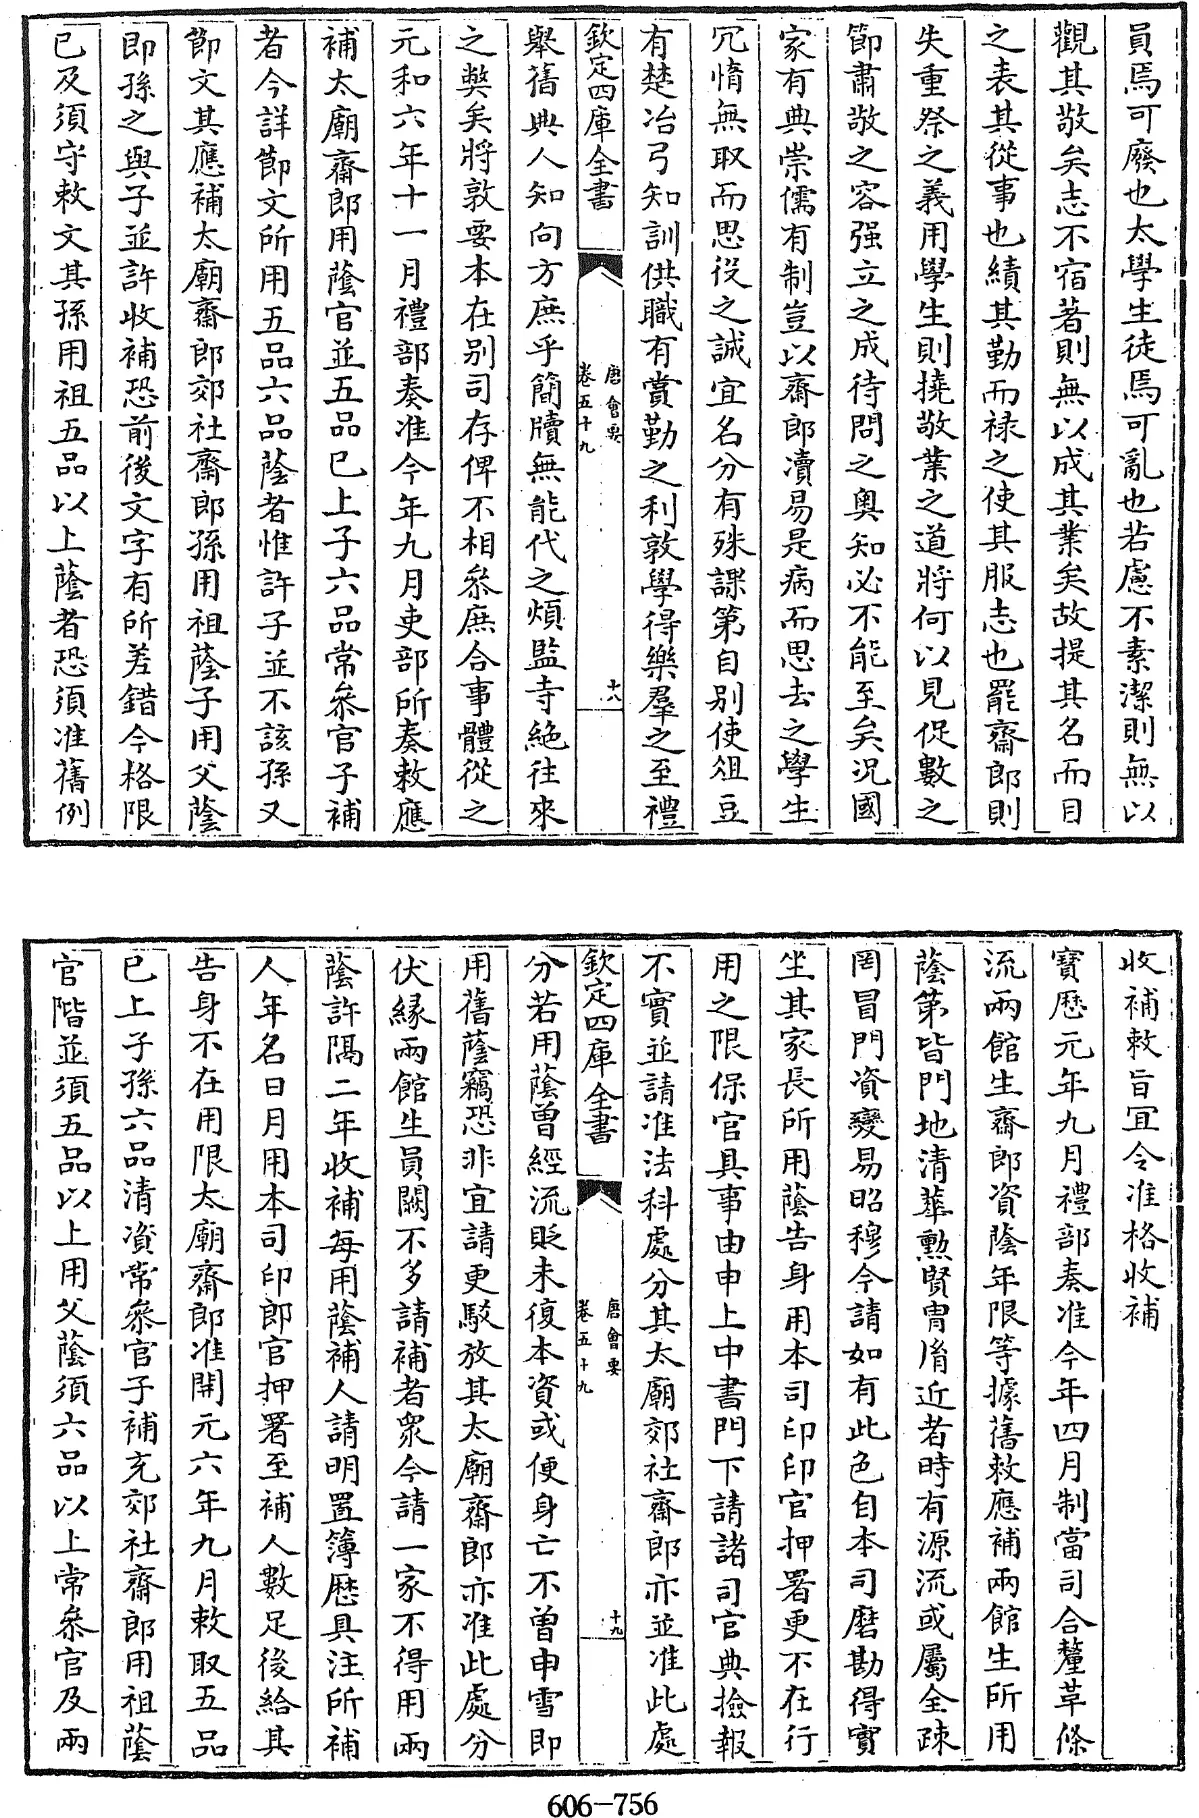 員焉可廢也太學生徒焉可亂也若慮不素潔則無以
觀其敬矣志不宿著則無以成其業矣故提其名而目
之表其從事也績其勤而祿之使其服志也罷齋郎則
失重祭之義用學生則撓敬業之道將何以見促數之
節肅敬之容强立之成待問之奧知必不能至矣況國
家有典崇儒有制豈以齋郎瀆易是病而思去之學生
冗惰無取而思役之誠宜名分有殊課第自別使俎豆
有楚冶弓知訓供職有賞勤之利敦學得樂羣之至禮
欽定四庫全書
唐會要
卷五十九
十八
舉舊典人知向方庶乎簡牘無能代之煩監寺絶往來
之獘矣將敦要本在别司存俾不相叅庶合事體從之
元和六年十一月禮部奏准今年九月吏部所奏敕應
補太廟齋郎用蔭官並五品已上子六品常叅官子補
者今詳節文所用五品六品蔭者惟許子並不該孫又
節文其應補太廟齋郎郊社齋郎孫用祖蔭子用父蔭
即孫之與子並許收補恐前後文字有所差錯今格限
已及須守敕文其孫用祖五品以上蔭者恐須准舊例
收補敕旨宜令准格收補
寶歷元年九月禮部奏准今年四月制當司合釐革條
流兩館生齋郎資蔭年限等據舊敕應補兩館生所用
蔭第皆門地清華勲賢胄胤近者時有源流或屬全踈
罔冒門資變易昭穆今請如有此色自本司磨勘得實
坐其家長所用蔭告身用本司印印官押署更不在行
用之限保官具事由申上中書門下請諸司官典撿報
不實並請准法科處分其太廟郊社齋郎亦並准此處
欽定四庫全書
唐會要
卷五十九
十九
分若用蔭曾經流貶未復本資或便身亡不曾申雪即
用舊蔭竊恐非宜請更駮放其太廟齋郎亦准此處分
伏緣兩館生員闕不多請補者衆今請一家不得用兩
蔭許隔二年收補每用蔭補人請明置簿歷具注所補
人年名日月用本司印郎官押署至補人數足後給其
告身不在用限太廟齋郎准開元六年九月敕取五品
已上子孫六品清資常叅官子補充郊社齋郎用祖蔭
官階並須五品以上用父蔭須六品以上常叅官及兩
606-756